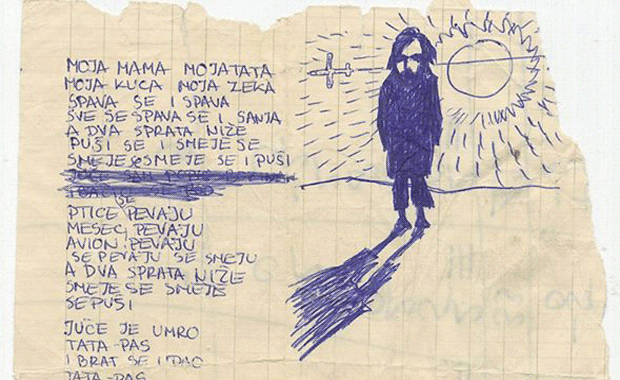 MOJA MAMA MOJA TATA
MOJA KUCA MOJA ZEKA
SPAVA SE I SPAVA
SVE SE SPAVA SE I SANJA
A DVA SPRATA NIŽE
PUŠI SE I SMEJE SE
SMEJE SE SMEJE SE I PUŠI
SE
PTICE PEVAJU
MESEC PEVAJU
AVION PEVAJU
SE PEVAJU SE SMEJU
A DVA SPRATA NIŽE
SMEJE SE SMEJE
SE PUŠI
JUČE JE UMRO
TATA-PAS
I BRAT SE I
TATA-PAS